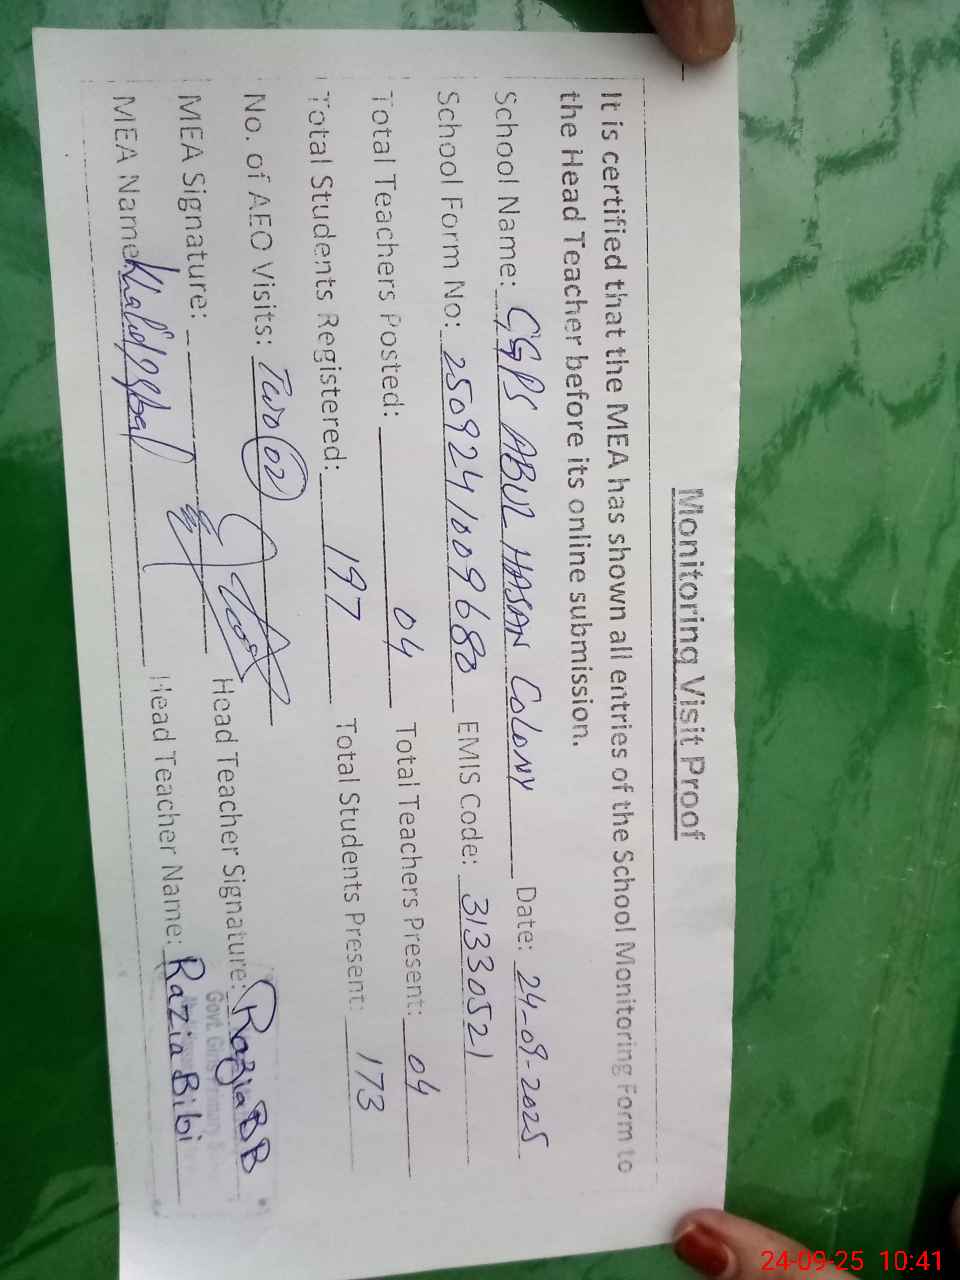 Monitoring Visit Proof
It is certified that the MEA has shown all entries of the School Monitoring Form to
the Head Teacher before its online submission.
School Name: GGPS ABUL HASAN COLONY Date: 24-09-2025
School Form No: 2509241009680 EMIS Code: 31330521
Total Teachers Posted: 04 Total Teachers Present: 04
Total Students Registered: 197 Total Students Present: 173
No. of AEO Visits: Two (02)
MEA Signature: Head Teacher Signature: Razia BB
MEA Name: Khalid Iqbal Head Teacher Name: Razia Bibi
Govt. Girls Primary
24-09-25 10:41